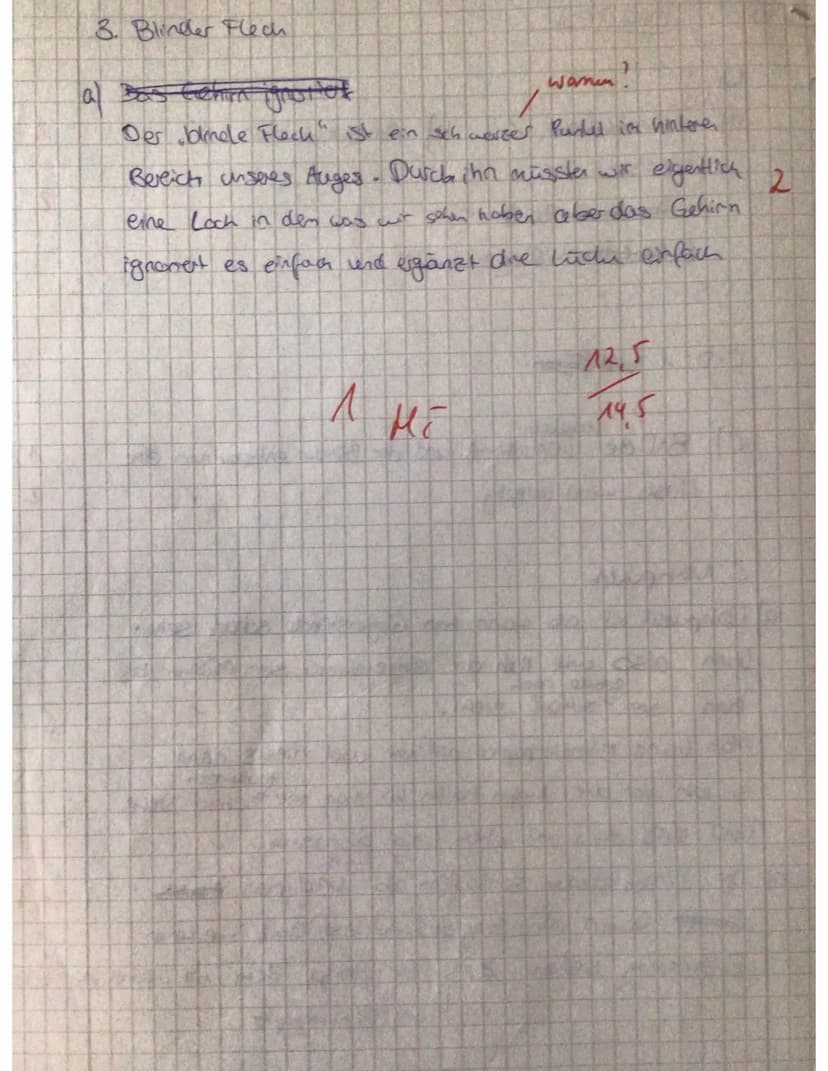 3. Blinder Fleck
a) Das Gehirn ignoriert
warum?
Der „blinde Fleck" ist ein schwarzer Punkt im hinteren
Bereich unseres Auges. Durch ihn müssten wir eigentlich
2
eine Loch in dem was wir sehn haben aber das Gehirn
ignoriert es einfach und ergänzt die Lücke einfach
12,5
14,5
1